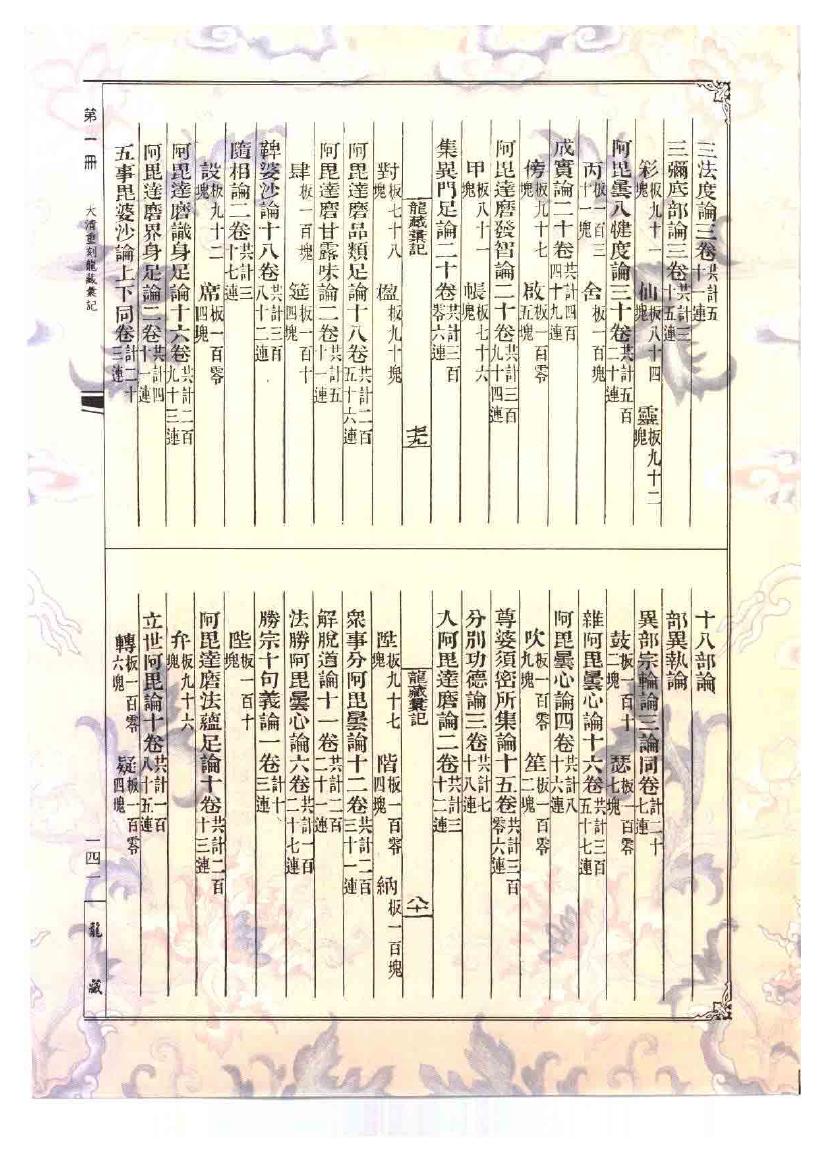 三法度論三卷共計五十連
三彌底部論三卷共計三十五連
彩板九十一塊 仙板八十四塊 靈板九十二塊
阿毘曇八犍度論三十卷共計五百二十連
丙板一百三十一塊 舍板一百塊
成實論二十卷共計四百四十九連
傍板九十七塊 啟板一百零五塊
阿毘達磨發智論二十卷共計三百九十四連
甲板八十一塊 帳板七十六塊
集異門足論二十卷共計三百零六連
龍藏彙記 七十九
對板七十八塊 楹板九十塊
阿毘達磨品類足論十八卷共計二百五十六連
阿毘達磨甘露味論二卷共計五十一連
肆板一百塊 筵板一百十四塊
鞞婆沙論十八卷共計三百八十二連
隨相論二卷共計三十七連
設板九十二塊 席板一百零四塊
阿毘達磨識身足論十六卷共計二百九十三連
阿毘達磨界身足論二卷共計四十一連
五事毘婆沙論上下同卷計二十三連
十八部論
部異執論
異部宗輪論三論同卷計二十七連
鼓板一百十二塊 瑟板一百零七塊
雜阿毘曇心論十六卷共計三百五十七連
阿毘曇心論四卷共計八十六連
吹板一百零九塊 笙板一百零二塊
尊婆須密所集論十五卷共計三百零六連
分別功德論三卷共計七十八連
入阿毘達磨論二卷共計三十二連
龍藏彙記 八十
陞板九十七塊 階板一百零四塊 納板一百塊
眾事分阿毘曇論十二卷共計二百三十一連
解脫道論十一卷共計二百二十連
法勝阿毘曇心論六卷共計一百二十七連
勝宗十句義論一卷計十三連
陛板一百十塊
阿毘達磨法蘊足論十卷共計二百十三連
弁板九十六塊
立世阿毘論十卷共計一百八十五連
轉板一百零六塊 疑板一百零四塊
第一冊 大清重刻龍藏彙記 一四一 龍藏